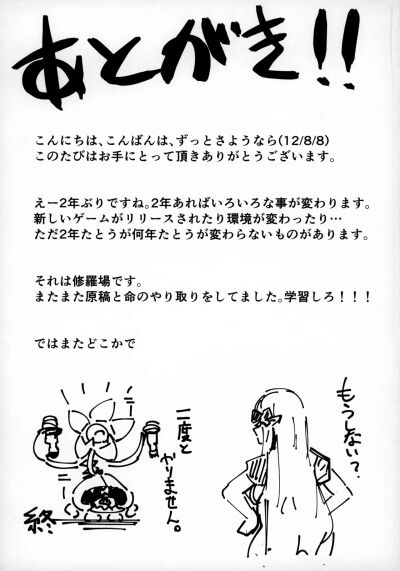 あとがき!!
こんにちは、こんばんは、ずっとさようなら(12/8/8)
このたびはお手にとって頂きありがとうございます。
えー2年ぶりですね。2年あればいろいろな事が変わります。
新しいゲームがリリースされたり環境が変わったり…
ただ2年たとうが何年たとうが変わらないものがあります。
それは修羅場です。
またまた原稿と命のやり取りをしてました。学習しろ!!!
ではまたどこかで
もうしない?
二度と
やりません。
終